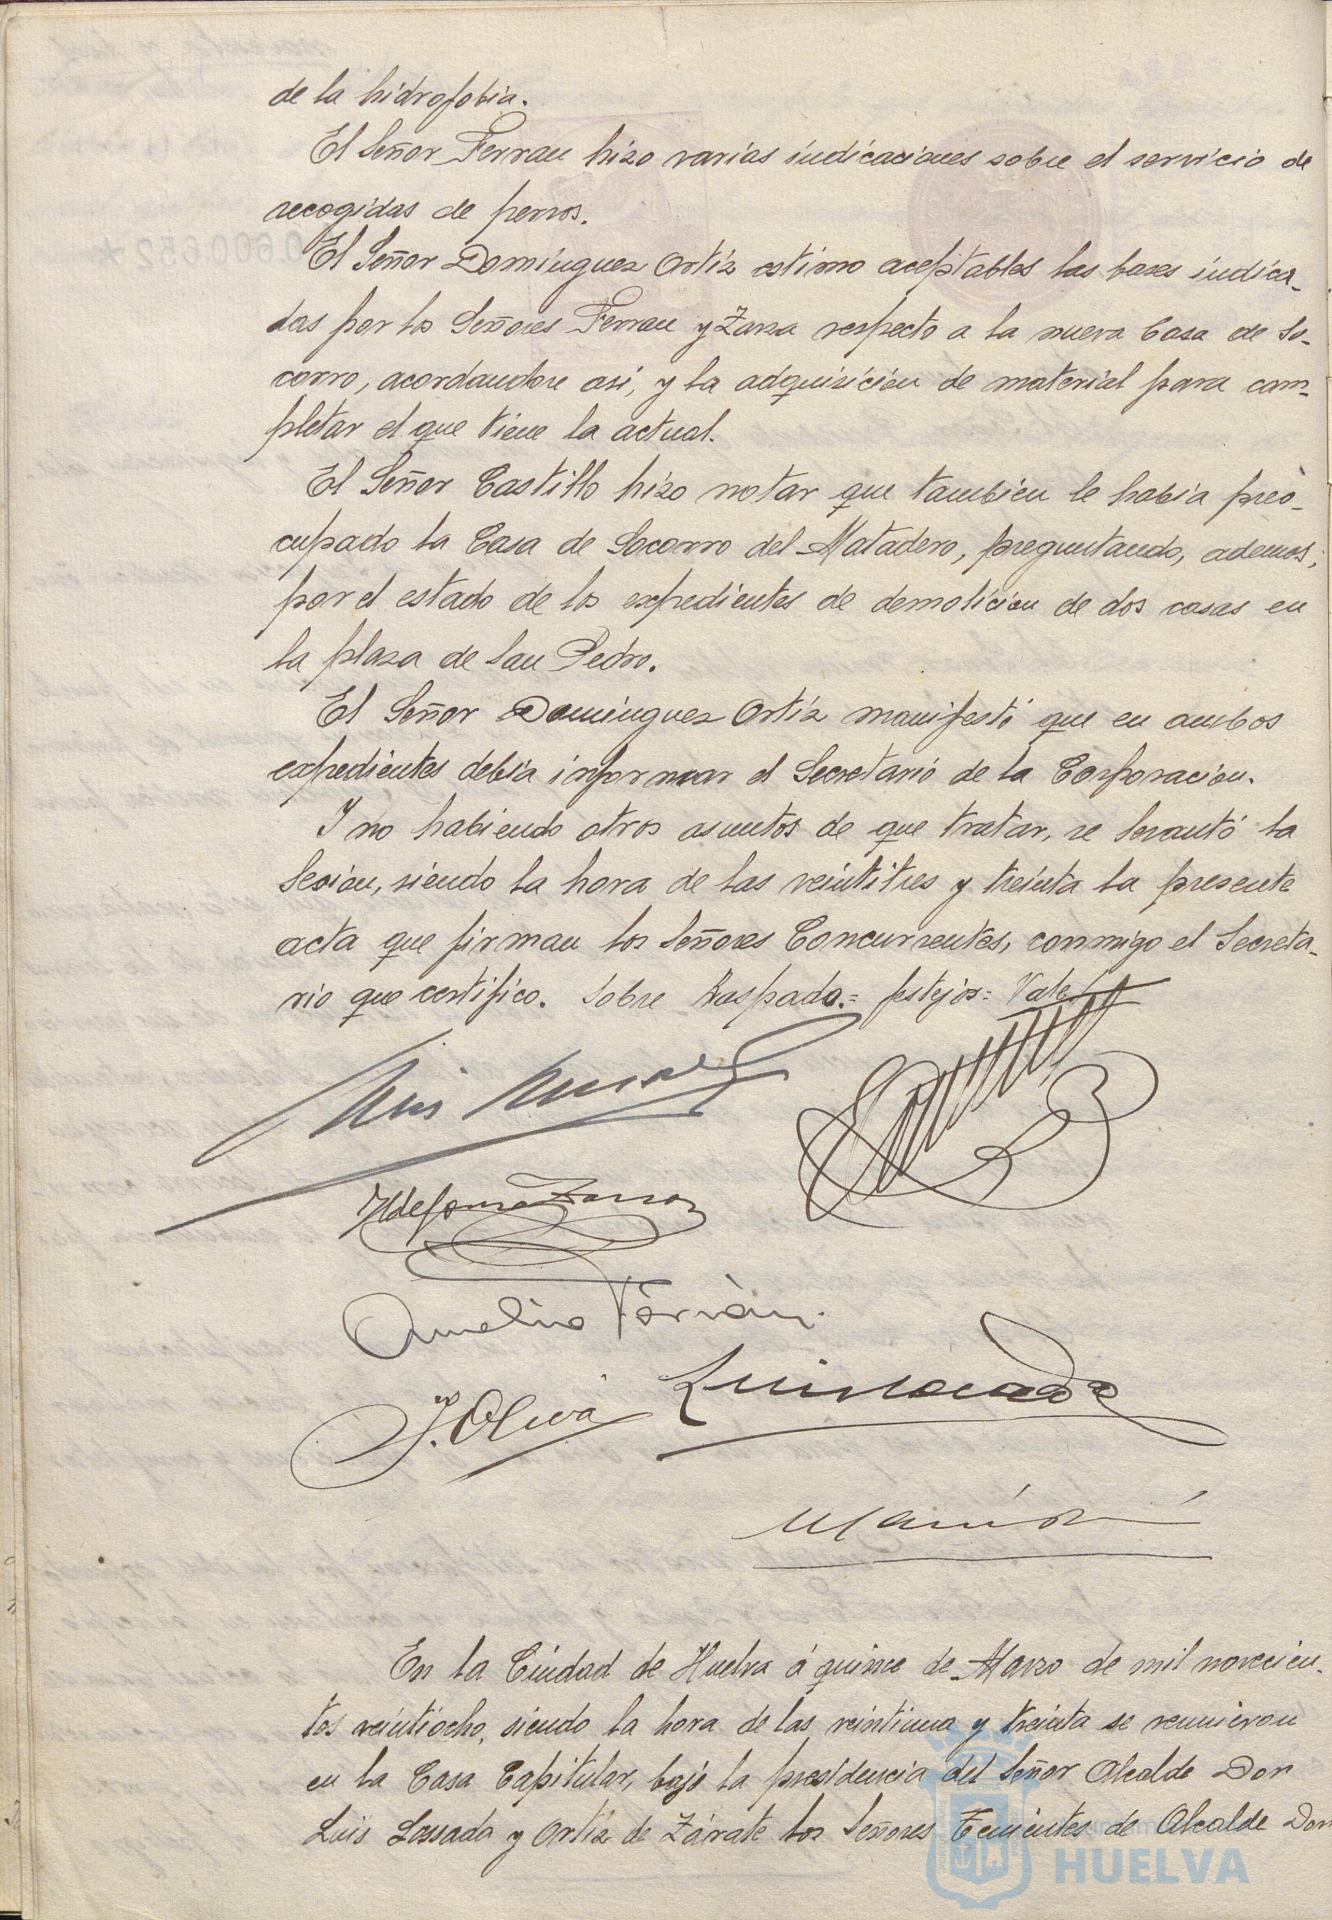 de la hidrofobia.
El Señor Terran hizo varias indicaciones sobre el servicio de
recogidas de perros.
El Señor Dominguez Ortiz estimo aceptables las bases indica-
das por los Señores Terran y Zarza respecto a la nueva Casa de So-
corro, acordandose asi, y la adquisicion de material para com-
pletar el que tiene la actual.
El Señor Castillo hizo notar que tambien le habia preo-
cupado la Casa de Socorro del Matadero, preguntando, ademas,
por el estado de los expedientes de demolicion de dos casas en
la plaza de San Pedro.
El Señor Dominguez Ortiz manifestó que en ambos
expedientes debia informar el Secretario de la Corporacion.
Y no habiendo otros asuntos de que tratar, se levantó la
Sesion, siendo la hora de las veintitres y treinta la presente
acta que firman los Señores Concurrentes, conmigo el Secreta-
rio que certifico. Sobre Raspado.= festejos= Vale.
Ildefonso Zarza
Aurelio Terrán
J. Oliva
En la Ciudad de Huelva á quince de Marzo de mil novecien-
tos veintiocho, siendo la hora de las veintiuna y treinta se reunieron
en la Casa Capitular, bajo la presidencia del Señor Alcalde Don
Luis Lossada y Ortiz de Zárate los Señores Tenientes de Alcalde Don
HUELVA